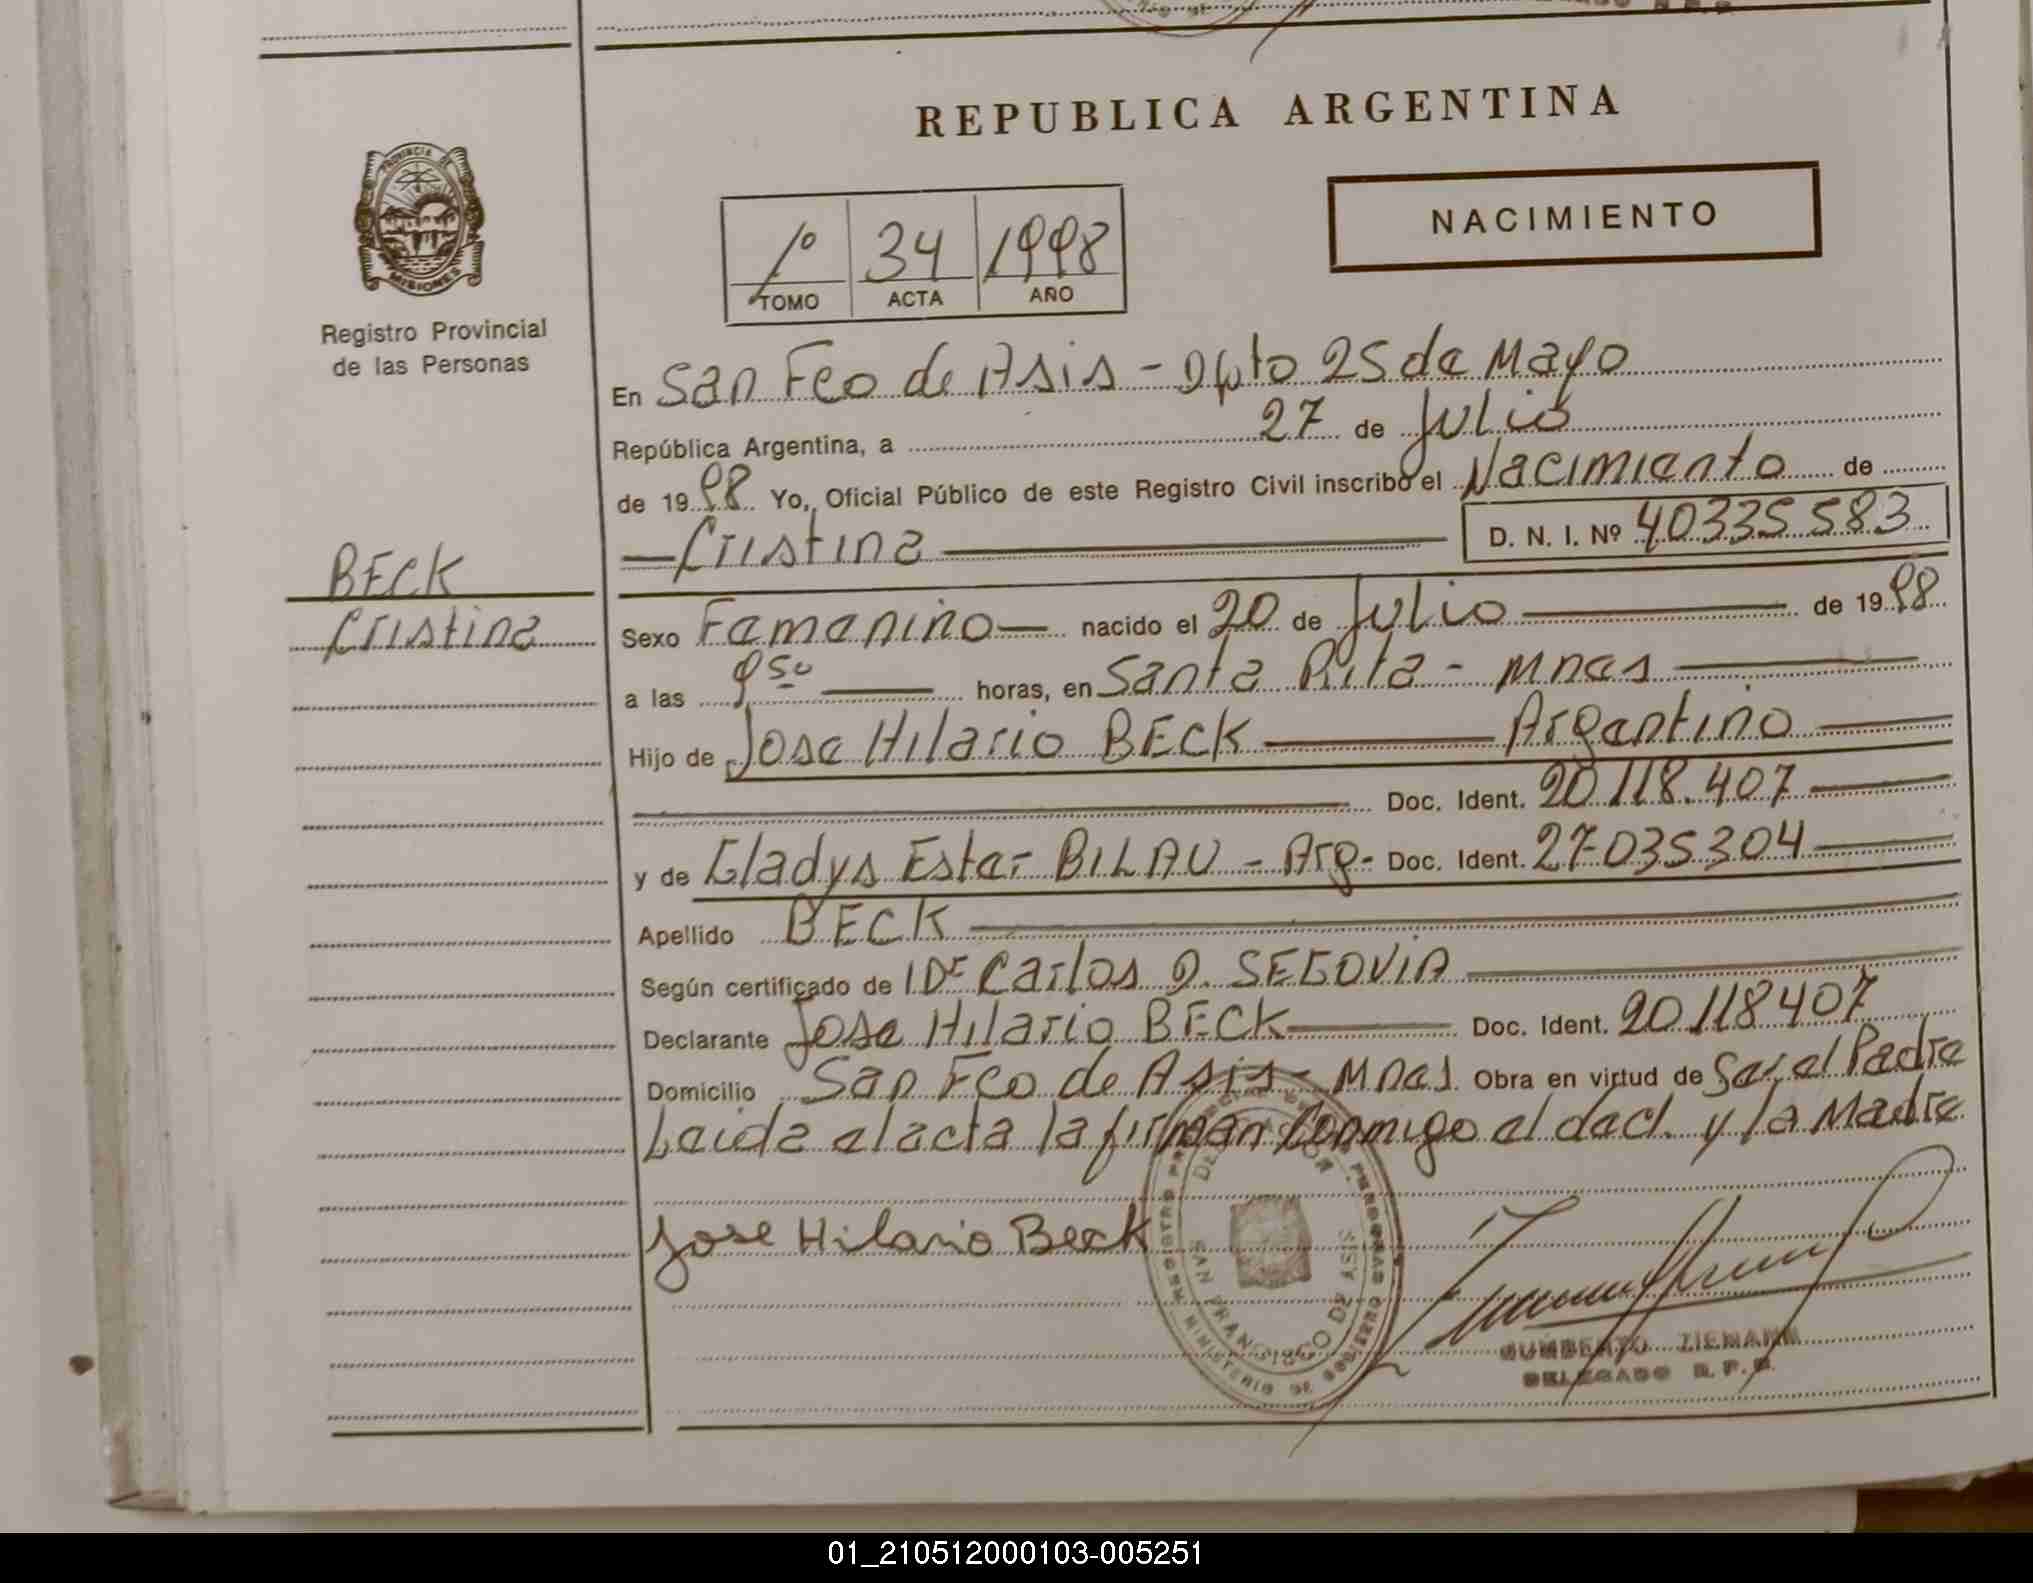 REPUBLICA ARGENTINA
PROVINCIA DE MISIONES
Registro Provincial
de las Personas
NACIMIENTO
1º 34 1998
TOMO ACTA AÑO
En San Fco de Asis - Dpto 25 de Mayo
República Argentina, a 27 de Julio
de 1998 Yo, Oficial Público de este Registro Civil inscribo el Nacimiento de
Cristina D. N. I. Nº 40335583
BECK
Cristina
Sexo Femenino nacido el 20 de Julio de 1998
a las 9 50 horas, en Santa Rita - Mnes
Hijo de Jose Hilario BECK Argentino
Doc. Ident. 20.118.407
y de Gladys Ester BILAU - Arg- Doc. Ident. 27.035304
Apellido BECK
Según certificado de Dr Carlos D. SEGOVIA
Declarante Jose Hilario BECK Doc. Ident. 20118407
Domicilio San Fco de Asis - Mnes. Obra en virtud de Ser el Padre
Leida el acta la firman Conmigo el decl. y la Madre
Jose Hilario Beck
SAN FRANCISCO DE ASIS
MINISTERIO DE GOBIERNO
HUMBERTO ZIEMANN
DELEGADO R. P. P.
01_210512000103-005251